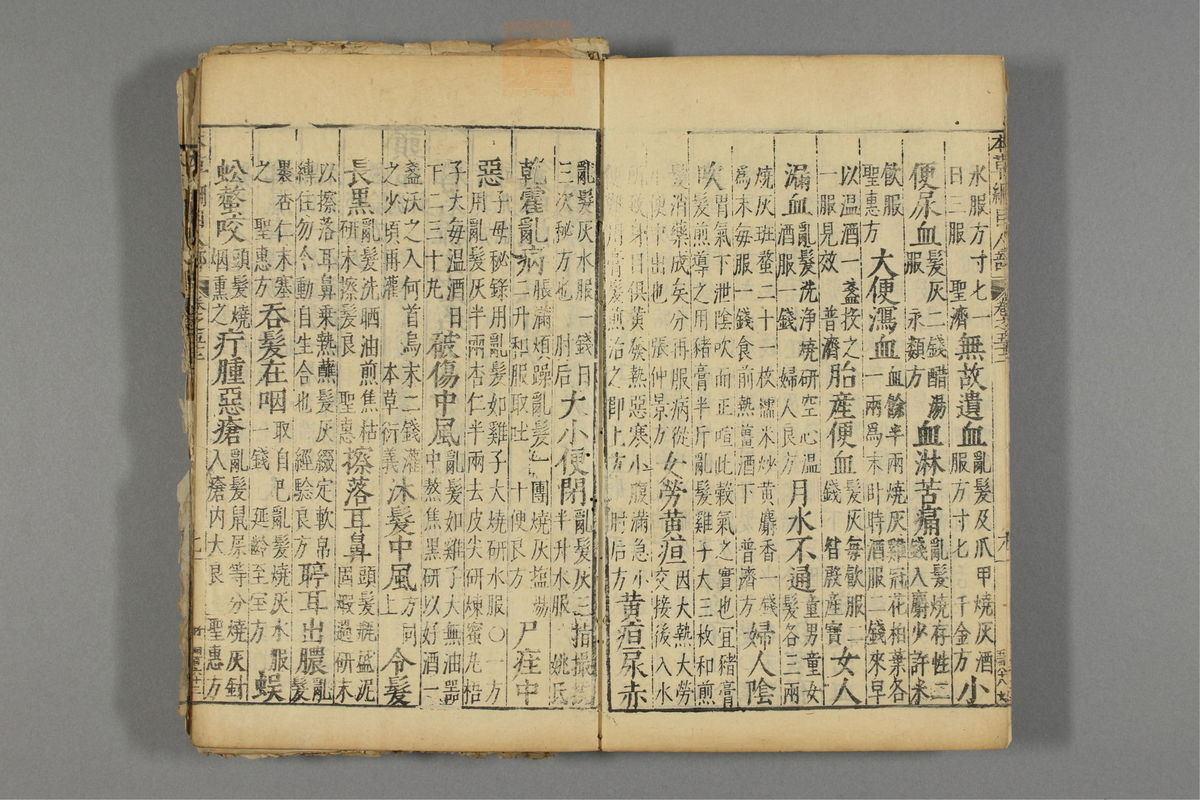 本草綱目人部 卷之五十二
水服方寸匕一日三服 聖濟 無故遺血 亂髮及爪甲燒灰酒服方寸匕 千金方 小
便尿血 髮灰二錢醋湯服 永類方 血淋苦痛 亂髮燒存性二錢入麝少許米
飲服 聖惠方 大便瀉血 血餘半兩燒灰雞冠花柏葉各一兩爲末卧時酒服二錢來早
以温酒一盞投之一服見效 普濟 胎產便血 髮灰每飲服二錢 昝殷產寶 女人
漏血 亂髮洗淨燒研空心温酒服一錢 婦人良方 月水不通 童男童女髮各三兩
燒灰斑蝥二十一枚糯米炒黄麝香一錢爲末每服一錢食前熱薑酒下 普濟方 婦人陰
吹 胃氣下泄陰吹而正喧此穀氣之實也宜猪膏髮煎導之用猪膏半斤亂髮雞子大三枚和煎
髮消藥成矣分再服病從小便中出也 張仲景方 女勞黄疸 因大熱大勞交接後入水
所致身目俱黄發熱惡寒小腹滿急小便難用膏髮煎治之即上方 肘后方 黄疸尿赤
亂髮灰水服一錢日三次秘方也 肘后 大小便閉 亂髮灰三指撮投半升水服 姚氏
乾霍亂病 脹滿煩躁亂髮一團燒灰鹽湯二升和服取吐 十便良方 尸疰中
惡 子母秘録用亂髮如雞子大燒研水服○一方用亂髮灰半兩杏仁半兩去皮尖研煉蜜丸梧
子大每温酒日下二三十丸 破傷中風 亂髮如雞子大無油器中熬焦黑研以好酒一
盞沃之入何首烏末二錢灌之少頃再灌 本草衍義 沐髮中風 方同上 令髮
長黑 亂髮洗晒油煎焦枯研末擦髮良 聖惠 擦落耳鼻 頭髮瓶盛泥固煅過研末
以擦落耳鼻乘熱蘸髮灰綴定軟帛縛住勿令動自生合也 經驗良方 聤耳出膿 亂髮
裹杏仁末塞之 聖惠方 吞髮在咽 取自己亂髮燒灰水服一錢 延齡至寶方 蜈
蚣螫咬 頭髮燒烟熏之 疔腫惡瘡 亂髮鼠屎等分燒灰針入瘡内大良 聖惠方